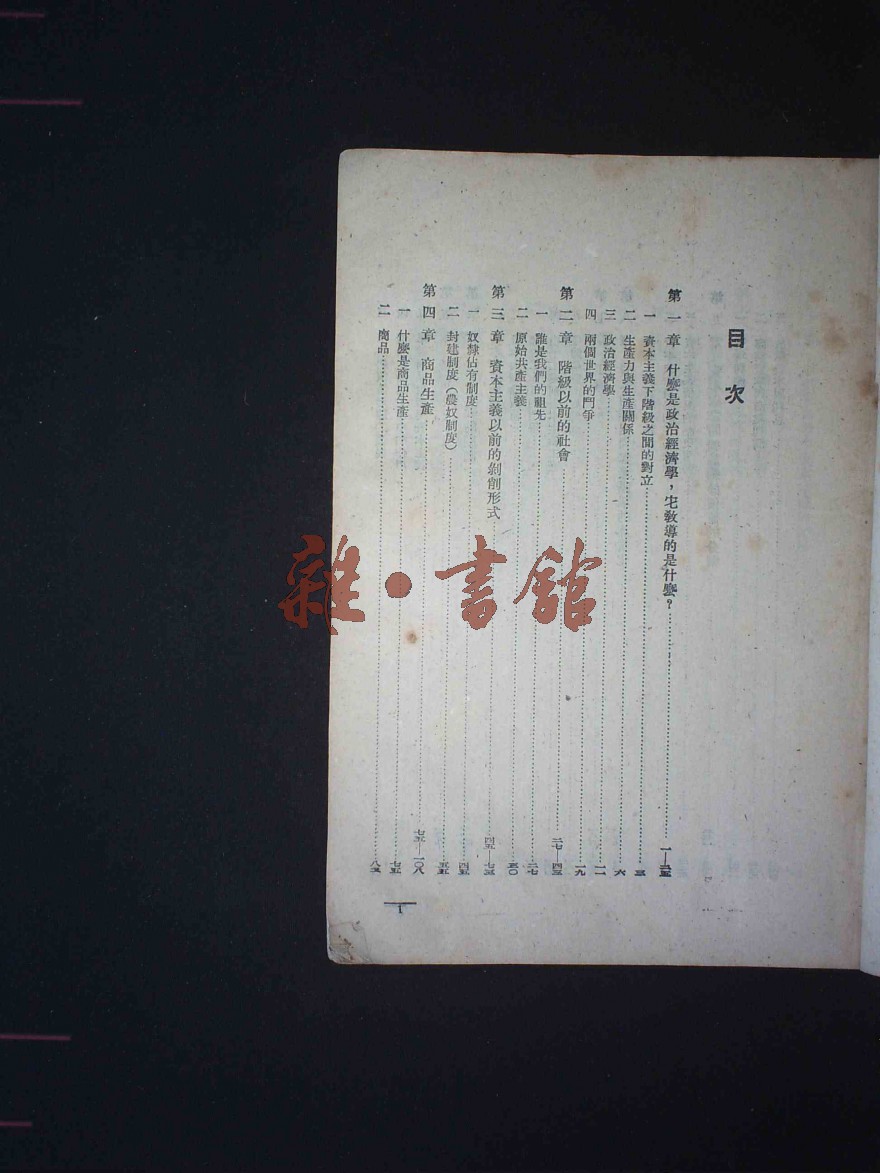 目次
第一章 什麼是政治經濟學，它教導的是什麼？……一—二五
一 資本主義下階級之間的對立……三
二 生產力與生產關係……六
三 政治經濟學……一一
四 兩個世界的鬥爭……一九
第二章 階級以前的社會……二七—四三
一 誰是我們的祖先……二七
二 原始共產主義……三〇
第三章 資本主義以前的剝削形式……四五—七三
一 奴隸佔有制度……四五
二 封建制度（農奴制度）……五五
第四章 商品生產……七五—一〇八
一 什麼是商品生產……七五
二 商品……八三
1
雜·書館